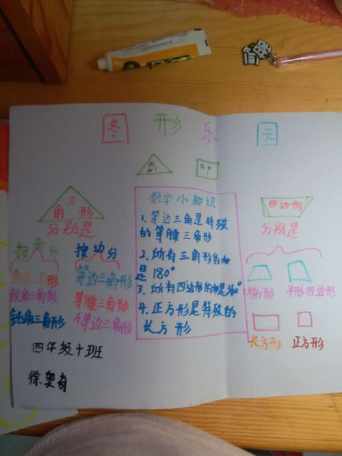 形 乐 园
三
角 形
分类是
按角分
按边分
等边三角形
等腰三角形
不等边三角形
钝角三角形
数学小知识
1.等边三角是特殊
的等腰三角形
2.所有三角形的和
是180°
4.正方形是特殊的
长方形
四边形
分类是
梯形
平行四边形
长方形
正方形
四年级十班